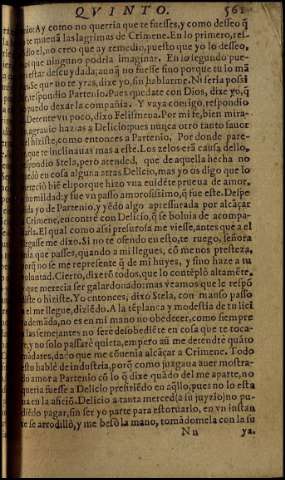 QVINTO. 562
tio: Ay como no querria que te fuesses, y como desseo q̃
te mueuã las lagrimas de Crimene. En lo primero, res-
dio el, no creo que ay remedio, puesto que yo lo desseo,
que ninguno podria imaginar. En lo segundo pue-
estar descuydada, aunq̃ no fuesse sino porque tu lo mã
Se que no te yras, dixe yo, sin hablarme. Ni seria possi
respondio Partenio. Pues quedate con Dios, dixe yo, q̃
puedo dexar la compañia. Y vaya contigo, respondio
Detente vn poco, dixo Felismena: Por mi te, bien mira-
agrauio hazias a Delicio, pues nunca otro tanto fauor
hiziste, como entonces a Partenio. Por donde pare-
que te inclinauas mas a este. Los zelos era causa dello,
spondio Stela, pero atended, que de aquella hecho no
en cosa alguna atras Delicio, mas yo os digo que lo
mereciò biẽ el, porque hizo vna euidẽte prueua de amor,
humildad, y fue vn passo amorosissimo, q̃ fue este. Despe-
da yo de Partenio, y yẽdo algo apressurada por alcãçar
Crimene, encontrè con Delicio, q̃ se boluia de acompa-
arla. El qual como assi presurosa me viesse, antes que a el
llegasse me dixo. Si no te ofendo en esto, te ruego, señora
mia, que passes, quando a mi llegues, cõ menos presteza,
porq̃ no se me represente q̃ de mi huyes, y sino haze a su
voluntad. Cierto, dixerõ todos, que lo contẽplò altamẽte,
que merecia ser galardonado: mas veamos que le respõ
diste o hiziste. Yo entonces, dixo Stela, con manso passo
el me llegue, diziẽdo. A la tẽplança y modestia de tu lice
ademãda, no es en mi mano no obedecer, como siempre
las semejantes no serè desobediẽte en cosa que te toca-
re, y no solo passarè quieta, empero aũ me detendre quãto
mãdares, dado que me cõuenia alcãçar a Crimene. Todo
esto hablè de industria, porq̃ como juzgaua auer mostra-
do amor a Partenio cõ lo q̃ dixe quãdo del me aparte, no
queria fuesse a Delicio prestiẽdo en aq̃llo, pues no lo esta
ua en la aficiõ. Delicio a tanta merced (a su juyzio) no pu-
diẽdo pagar, sin ser yo parte para estoruarlo, en vn instan
te se arrodillò, y me besò la mano, tomãdomela con la su
Nn ya.